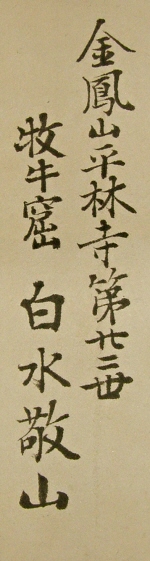 金鳳山平林寺第廿二世
牧牛窟 白水敬山